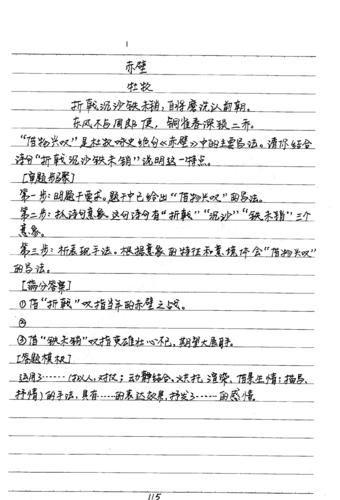 赤壁
杜牧
折戟沉沙铁未销，自将磨洗认前朝。
东风不与周郎便，铜雀春深锁二乔。
"借物兴叹"是杜牧咏史绝句《赤壁》中的主要写法。请你结合
诗句"折戟沉沙铁未销"说明这一特点。
[审题步骤]
第一步：明题干要求。题干中已给出"借物兴叹"的写法。
第二步：找诗句意象。这句诗句有"折戟""沉沙""铁未销"三个
意象。
第三步：析表现手法。根据意象的特征和意境体会"借物兴叹"
的写法。
[满分答案]
①借"折戟"叹指当年的赤壁之战。
②
③借"铁未销"叹指英雄壮心不已，期望大展身手。
[答题模板]
运用了……（拟人，对仗；动静结合、烘托、渲染、借景生情；描写、
抒情）的手法，具有……的表达效果，抒发了……的感情。
115